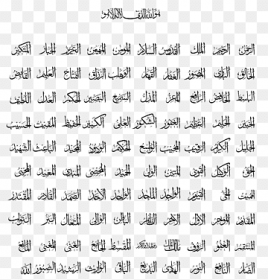 هو الله الذي لا إله إلا هو
الرحمن الرحيم الملك القدوس السلام المؤمن المهيمن العزيز الجبار المتكبر
الخالق البارئ المصور الغفار القهار الوهاب الرزاق الفتاح العليم القابض
الباسط الخافض الرافع المعز المذل السميع البصير الحكم العدل اللطيف
الخبير الحليم العظيم الغفور الشكور العلي الكبير الحفيظ المقيت الحسيب
الجليل الكريم الرقيب المجيب الواسع الحكيم الودود المجيد الباعث الشهيد
الحق الوكيل القوي المتين الولي الحميد المحصي المبدئ المعيد المحيي
المميت الحي القيوم الواجد الماجد الواحد الأحد الصمد القادر المقتدر
المقدم المؤخر الأول الآخر الظاهر الباطن الوالي المتعال البر التواب
المنتقم العفو الرؤوف مالك الملك ذو الجلال والإكرام المقسط الجامع الغني المغني المانع
الضار النافع النور الهادي البديع الباقي الوارث الرشيد الصبور